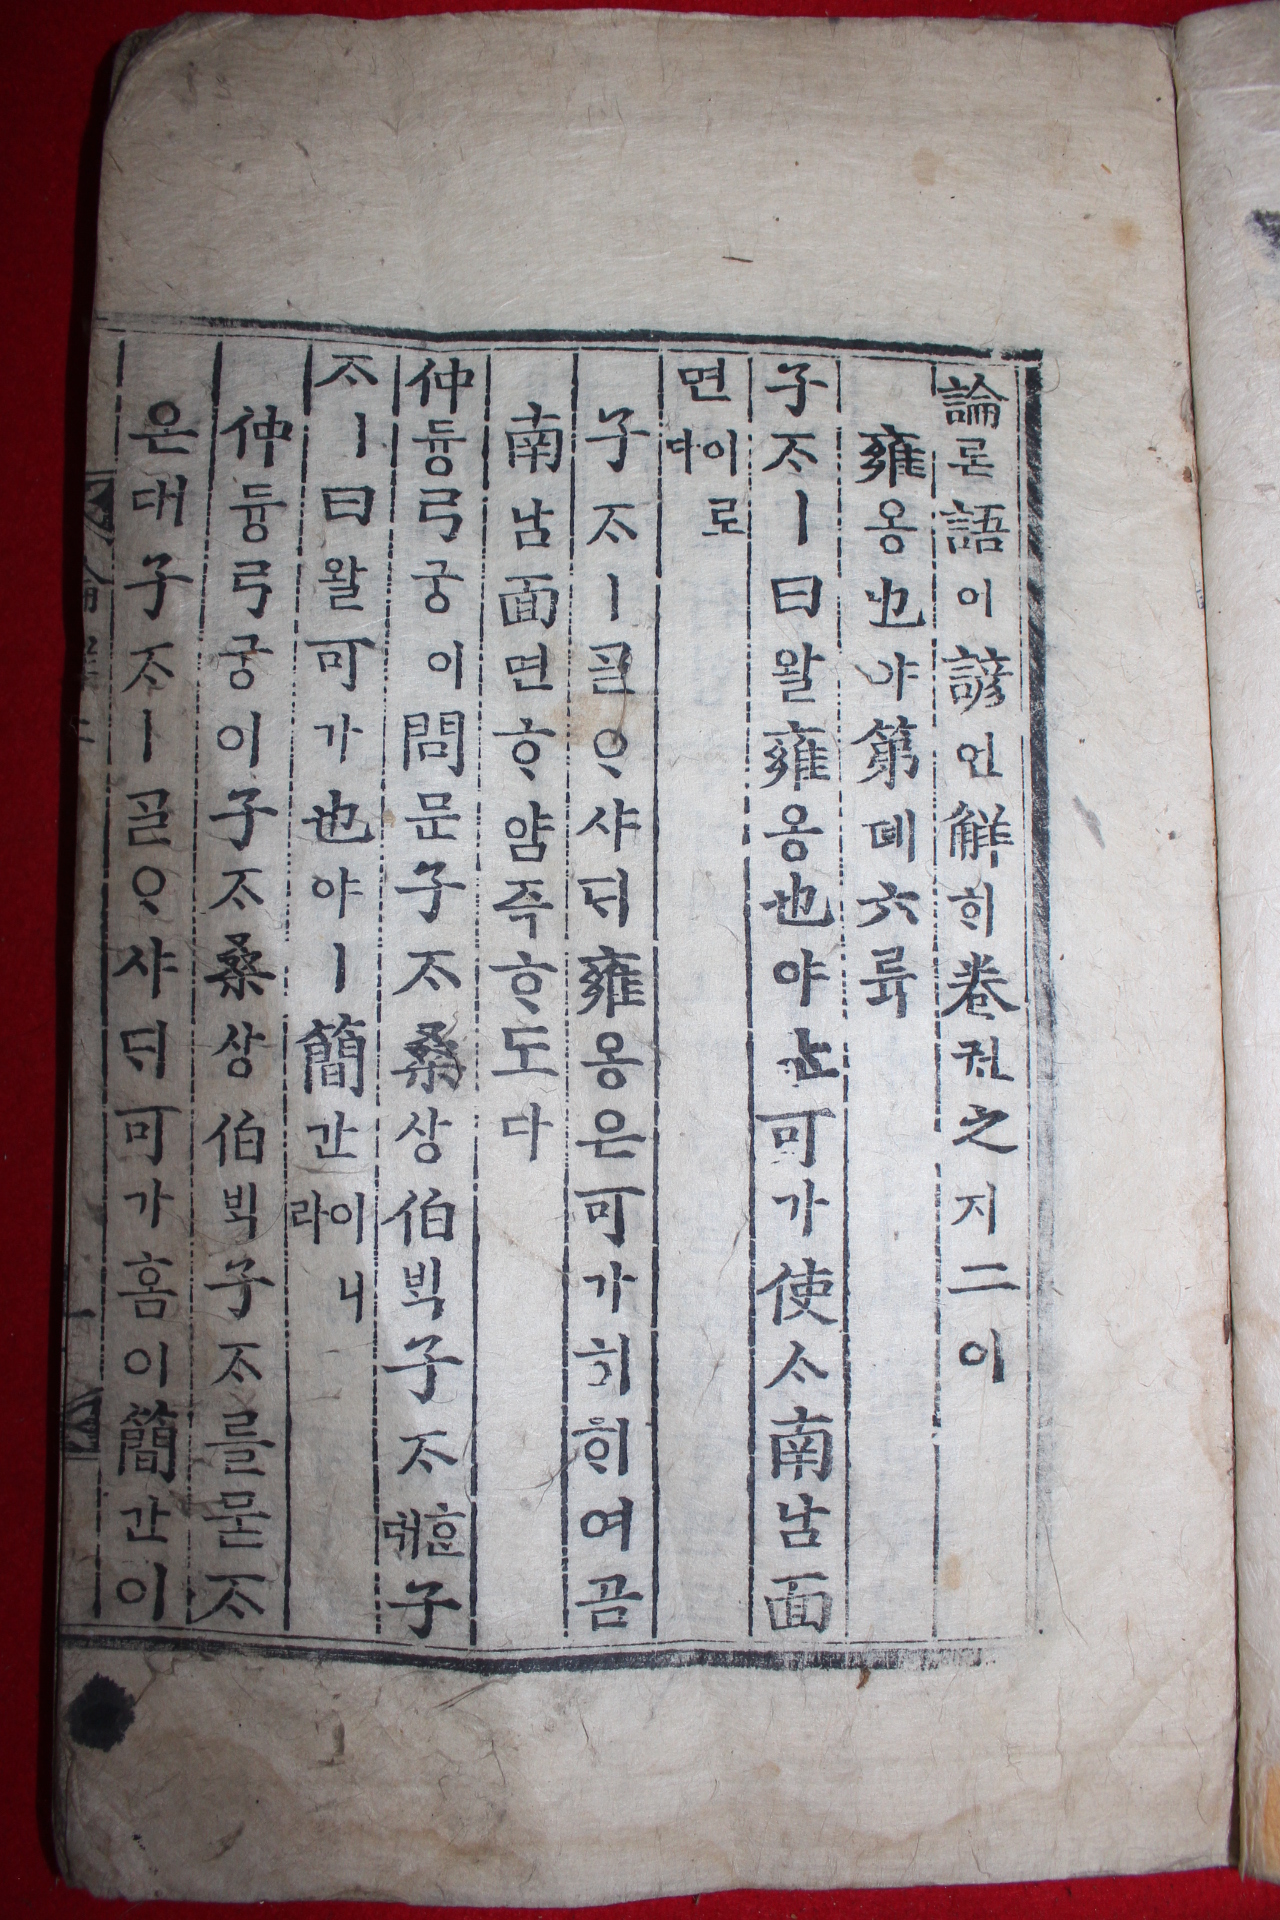 論론語어諺언解ᄒᆡ卷권之지二이
雍옹也야第뎨六륙
子ᄌᆞㅣ曰왈雍옹也야ᄂᆞᆫ可가使ᄉᆞ南남面
면이로다
子ᄌᆞㅣᄀᆞᆯᄋᆞ샤ᄃᆡ雍옹은可가히ᄒᆡ여곰
南남面면ᄒᆞ얌즉ᄒᆞ도다
仲듕弓궁이問문子ᄌᆞ桑상伯ᄇᆡᆨ子ᄌᆞᄒᆞᆫ대子
ᄌᆞㅣ曰왈可가也야ㅣ簡간이니라
仲듕弓궁이子ᄌᆞ桑상伯ᄇᆡᆨ子ᄌᆞ를묻ᄌᆞ
온대子ᄌᆞㅣᄀᆞᆯᄋᆞ샤ᄃᆡ可가홈이簡간이